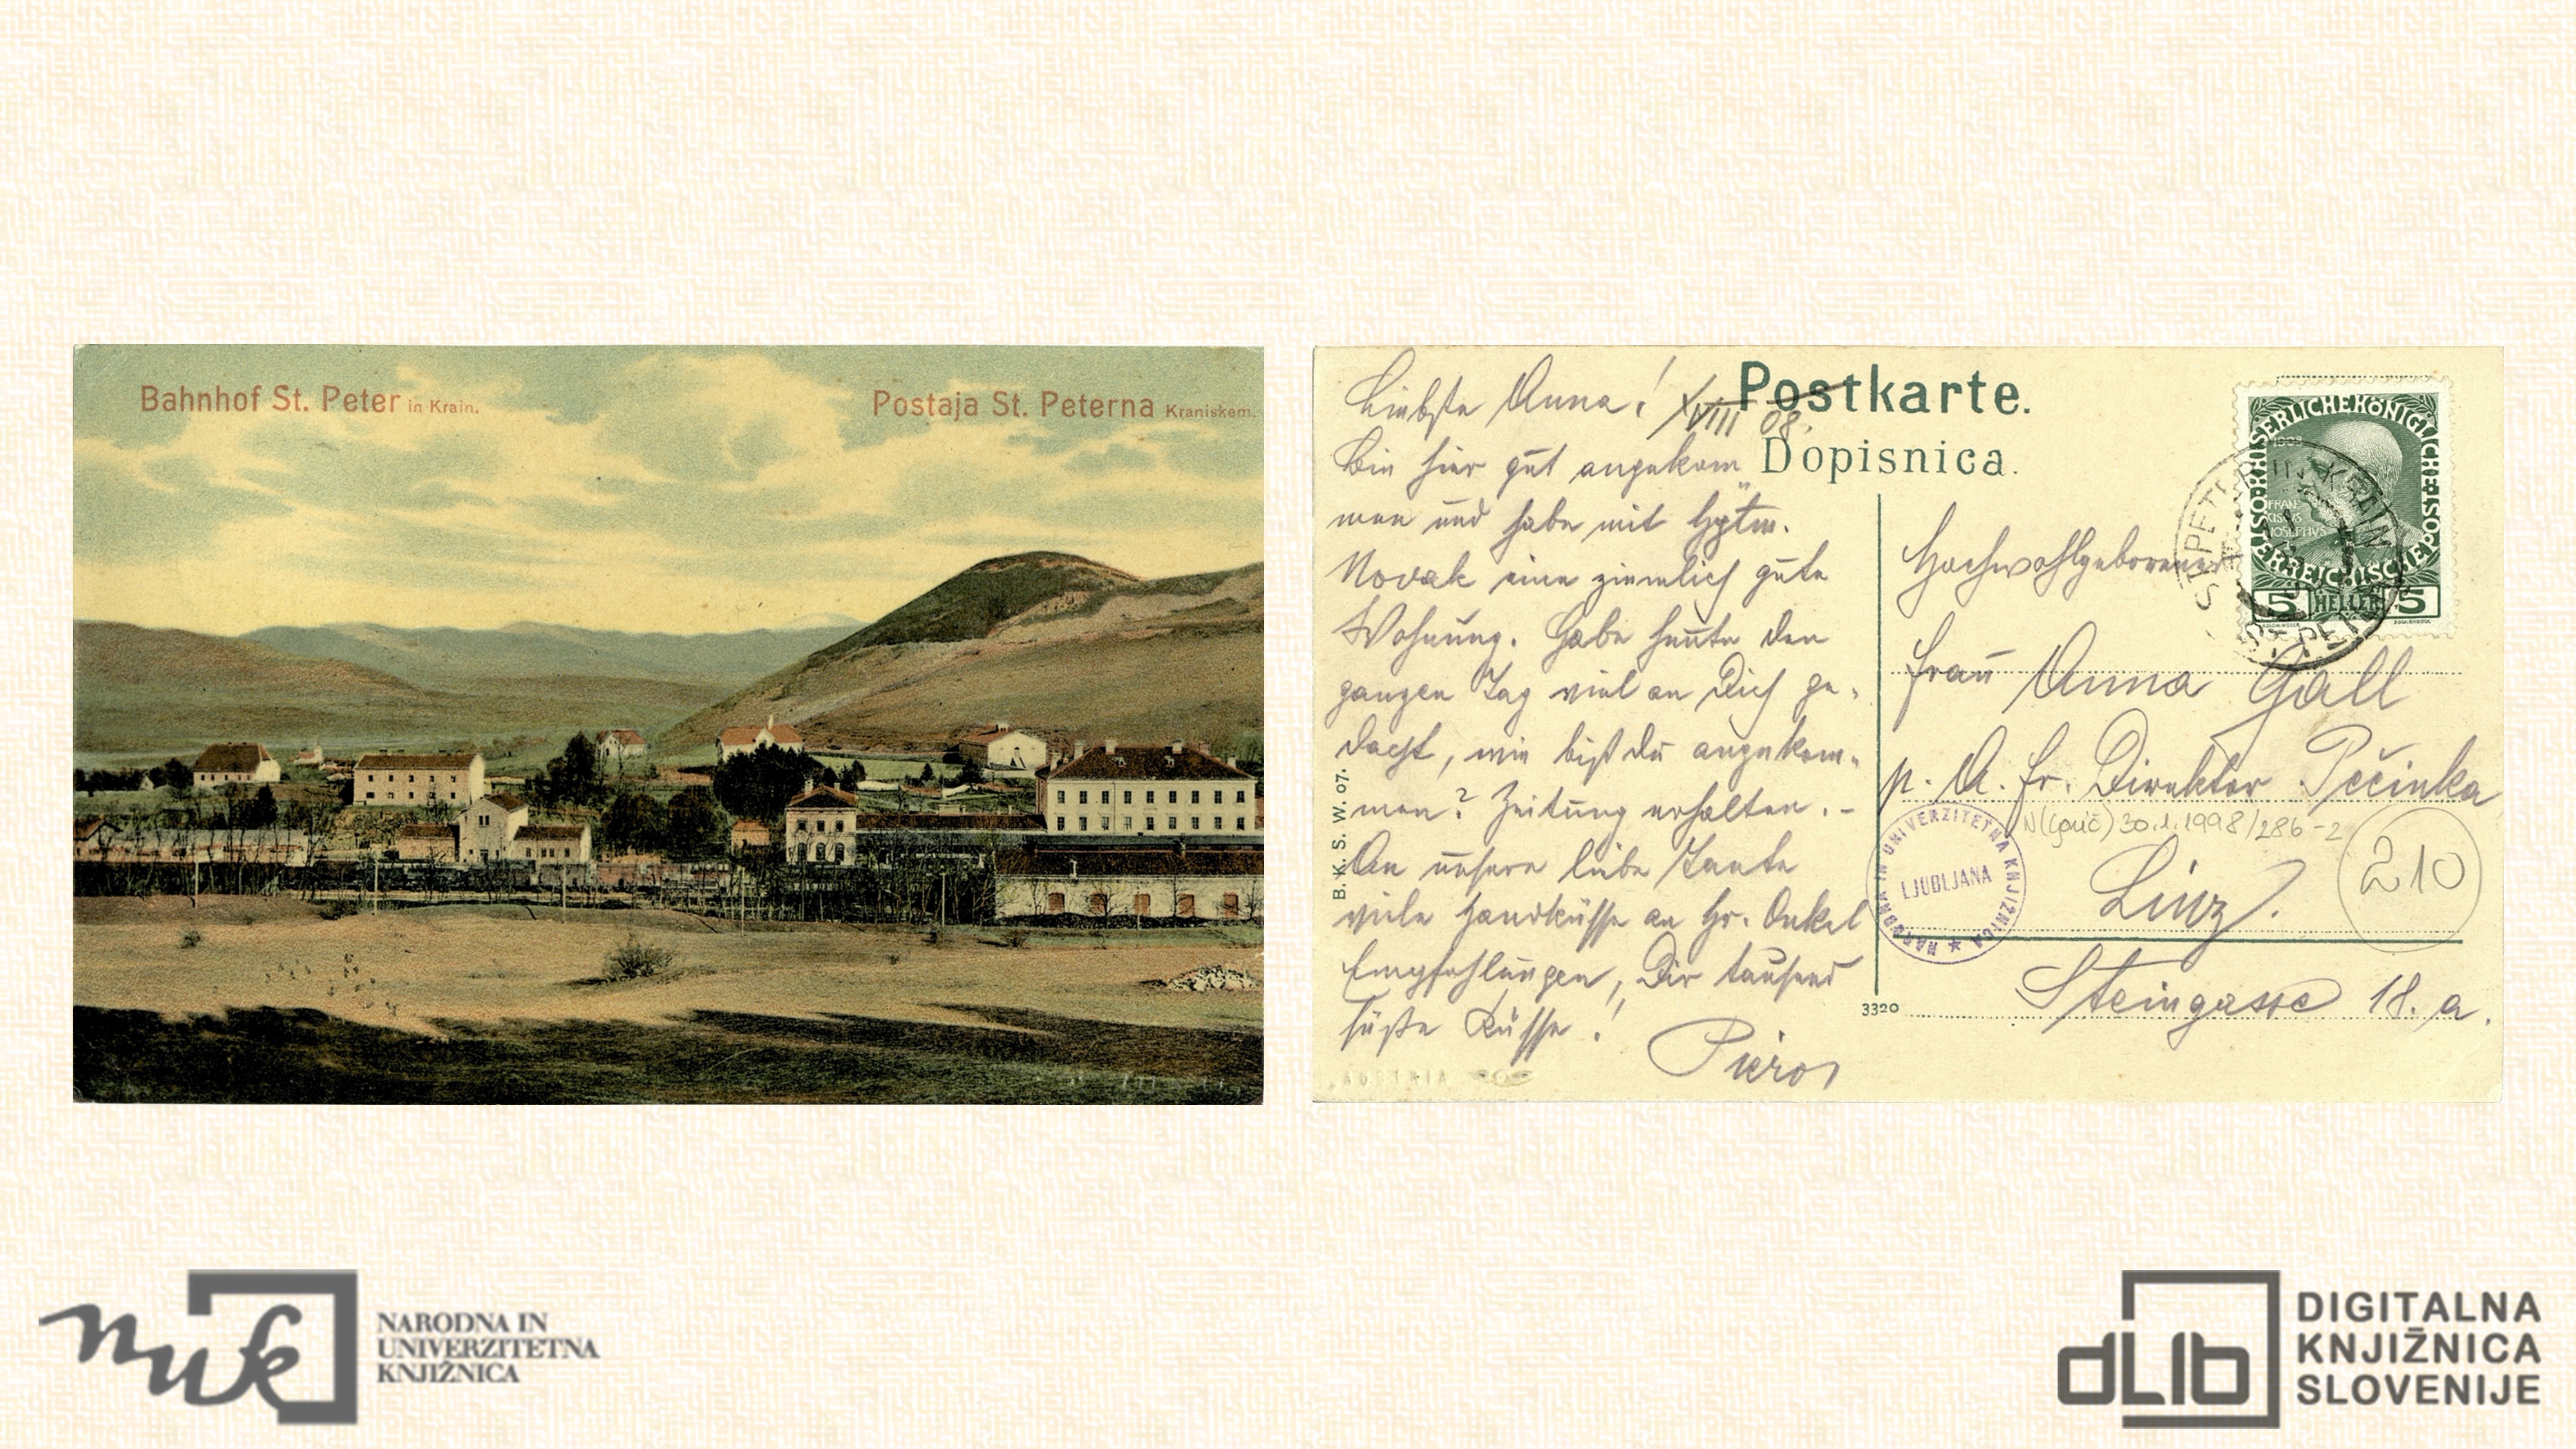 Bahnhof St. Peter in Krain.
Postaja St. Peterna Kraniskem.
Liebste Anna! X/VIII 08.
Bin hier gut angekom
men und habe mit Hptm.
Novak eine ziemlich gute
Wohnung. Habe heute den
ganzen Tag viel an Dich ge-
dacht, wie bist du angekom-
men? Zeitung erhalten. –
An unsere liebe Tante
viele Handküsse an Hr. Onkel
Empfehlungen, Dir tausend
süße Küsse!
AUSTRIA
B. K. S. W. 07.
Postkarte.
Dopisnica.
KAISERLICHE KÖNIGLICHE ÖSTERREICHISCHE POST
FRAN
CISCVS
IOSEPHVS
5 HELLER 5
ST. PETER IN KRAIN
Hochwohlgeborene
Frau Anna Gall
p. A. Fr. Direktor Pečinka
30.1.1998/286-2
NARODNA IN UNIVERZITETNA KNJIŽNICA ★
LJUBLJANA
210
Linz.
Steingasse 18. a.
3320
nuk
NARODNA IN
UNIVERZITETNA
KNJIŽNICA
dLib
DIGITALNA
KNJIŽNICA
SLOVENIJE